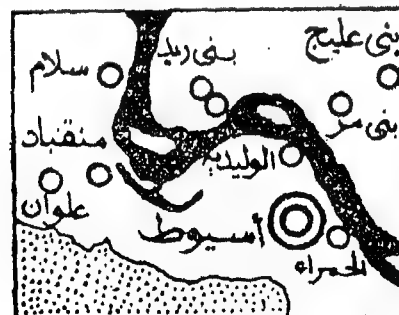 بنى عليج
بنى زيد
سلام
بنى مر
منقباد
الوليدية
علوان
أسيوط
الحمراء